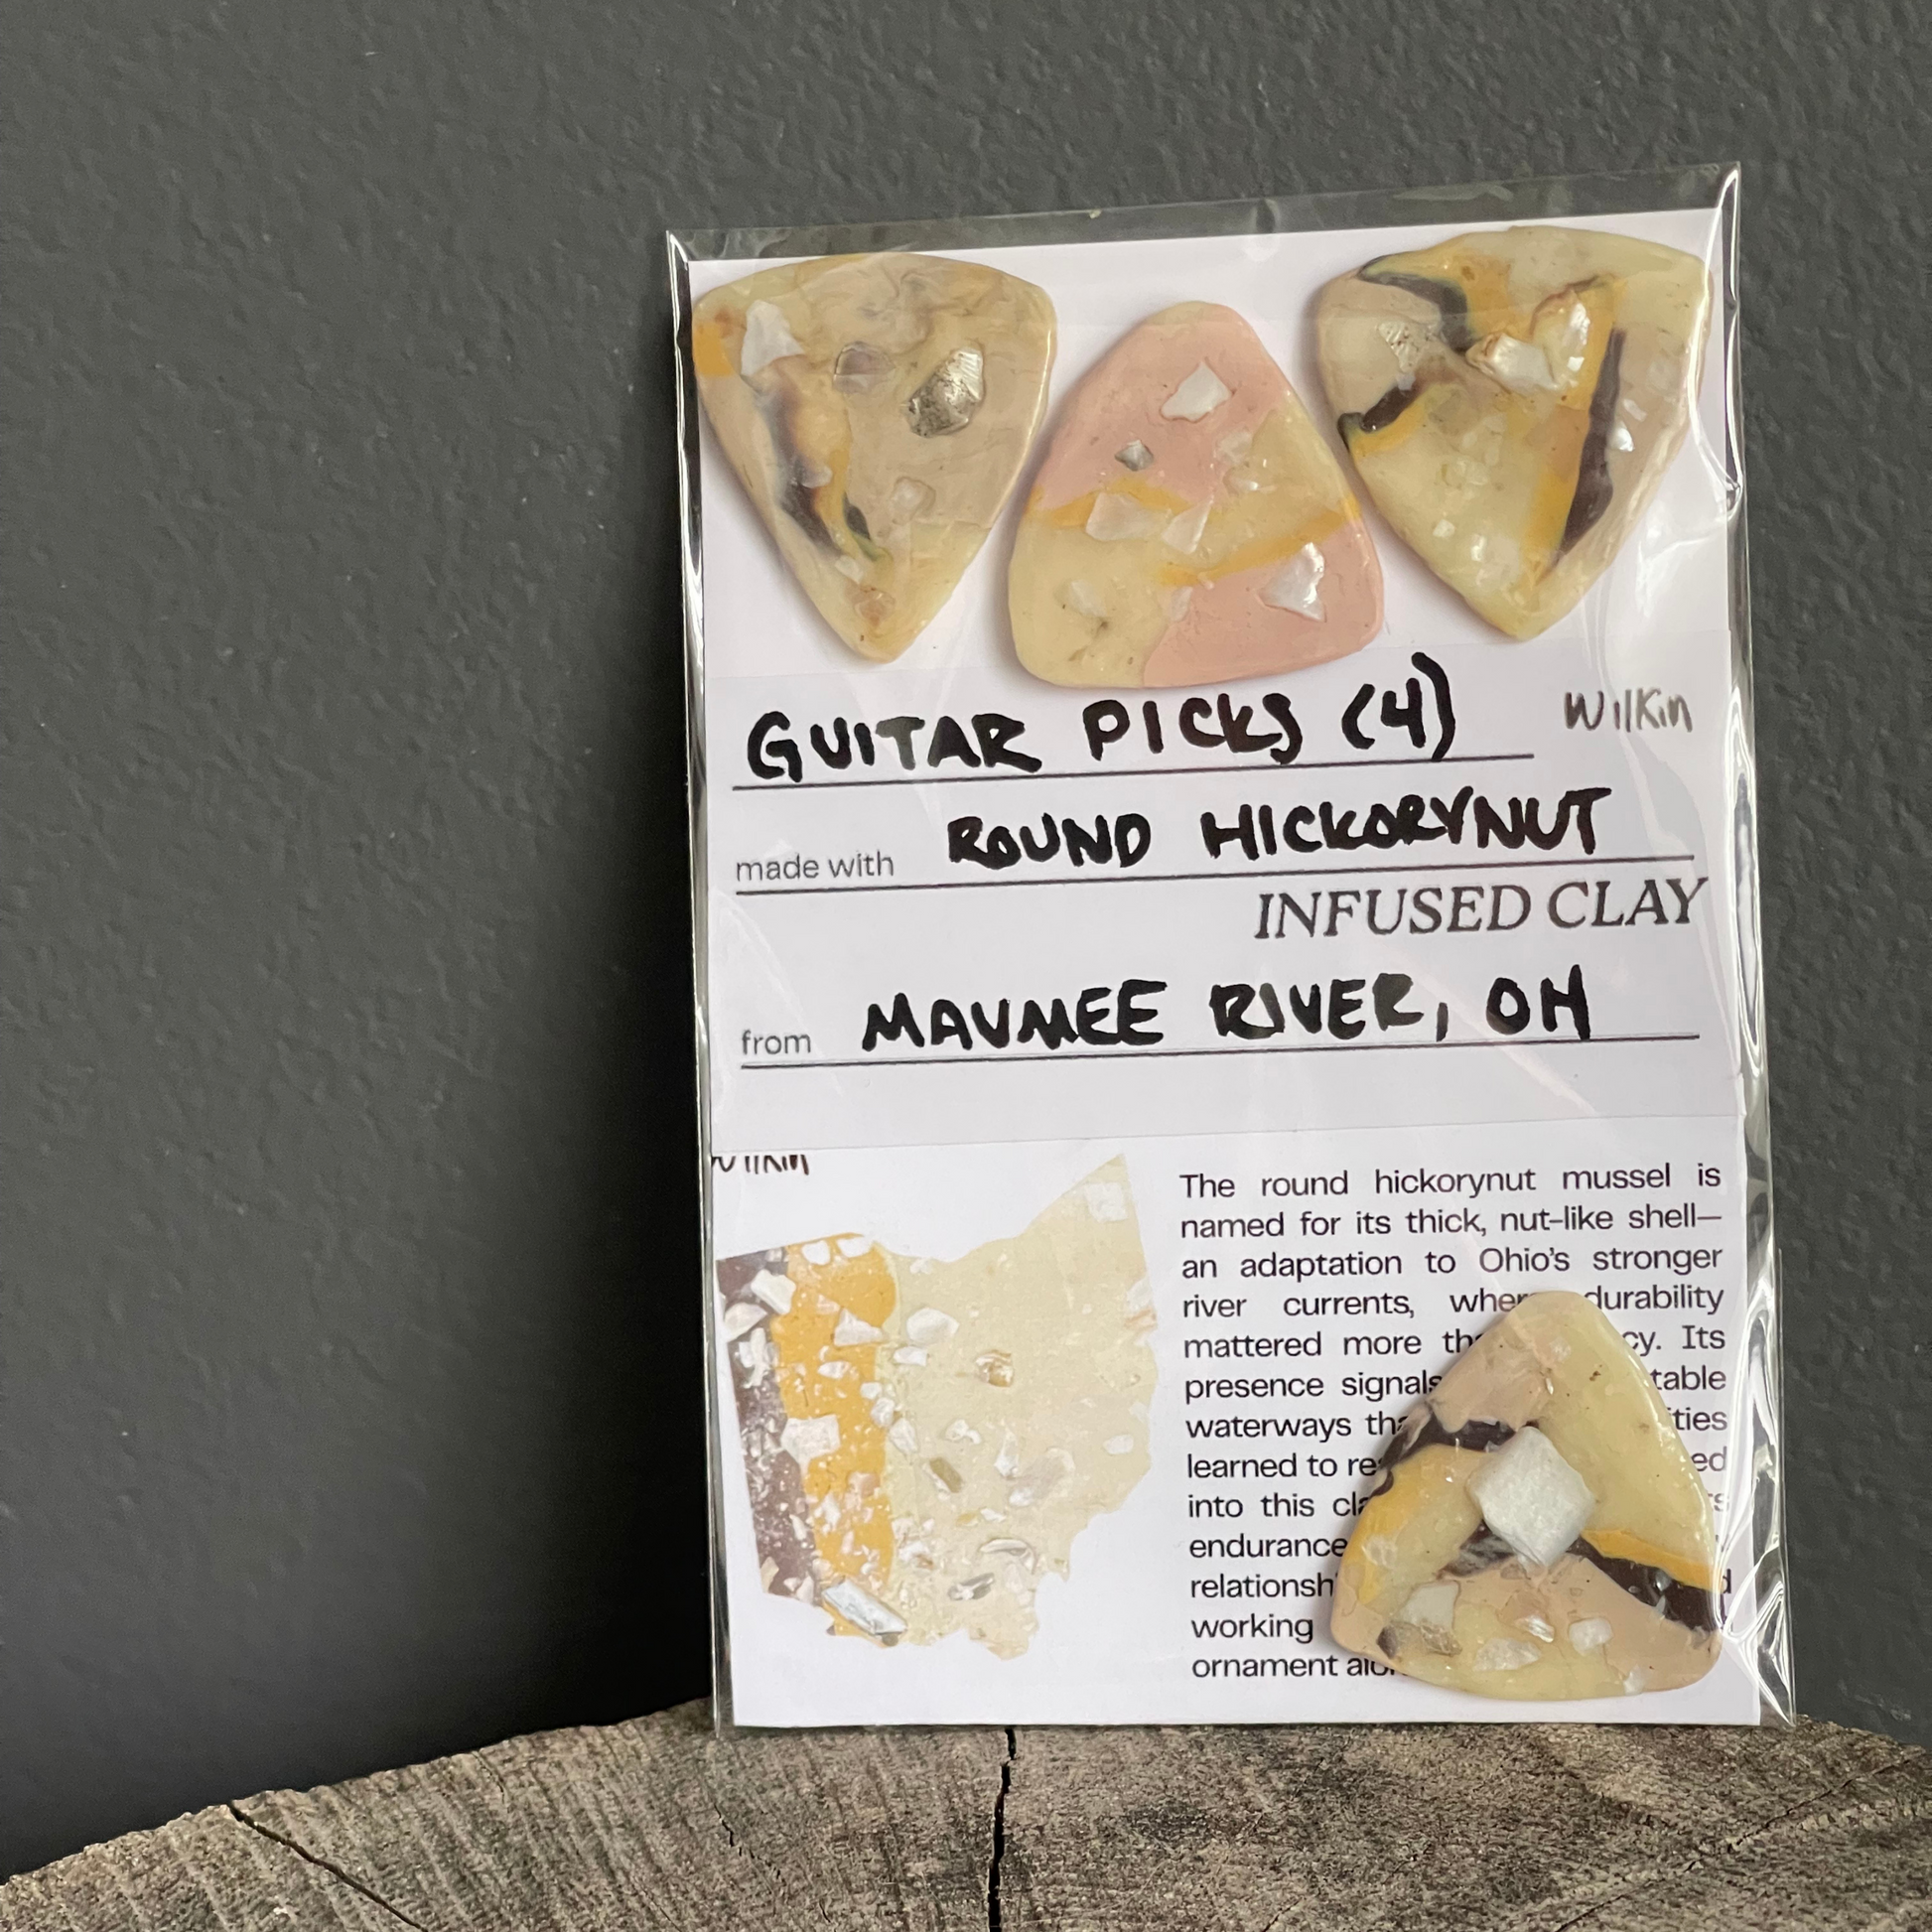 GUITAR PICKS (4) Wilkin
made with ROUND HICKORYNUT
INFUSED CLAY
from MAUMEE RIVER, OH
The round hickorynut mussel is
named for its thick, nut-like shell—
an adaptation to Ohio's stronger
river currents, durability
mattered more Its
presence
waterways
learned to
into this
endurance
working
ornament